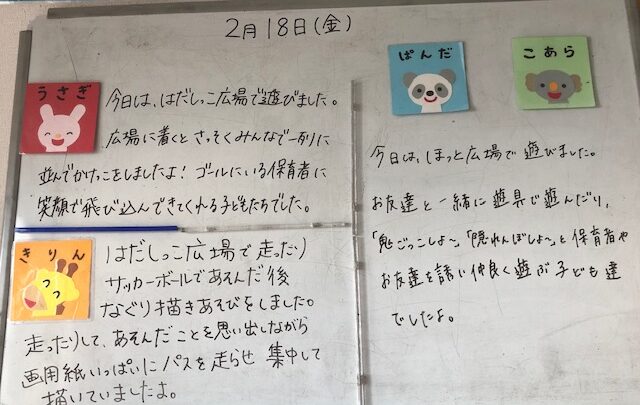 2月18日(金)
うさぎ
今日は、はだしっこ広場で遊びました。
広場に着くとさっそくみんなで一列に
並んでかけっこをしましたよ!ゴールにいる保育者に
笑顔で飛び込んできてくれる子どもたちでした。
きりん
はだしっこ広場で走ったり
サッカーボールであそんだ後
なぐり描きあそびをしました。
走ったりして、あそんだことを思い出しながら
画用紙いっぱいにパスを走らせ集中して
描いていましたよ。
ぱんだ
こあら
今日は、ほっと広場で遊びました。
お友達と一緒に遊具で遊んだり、
「鬼ごっこしよ〜」「隠れんぼしよ〜」と保育者や
お友達を誘い仲良く遊ぶ子ども達
でしたよ。